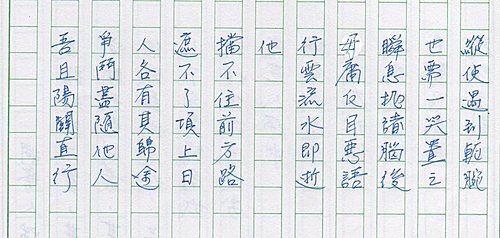 縱使遇到軛腕
也要一笑置之
瞬息拋諸腦後
毋庸反目惡語
行雲流水即逝
他
擋不住前方路
遮不了頂上日
人各有其歸途
爭鬥盡隨他人
吾且陽關直行